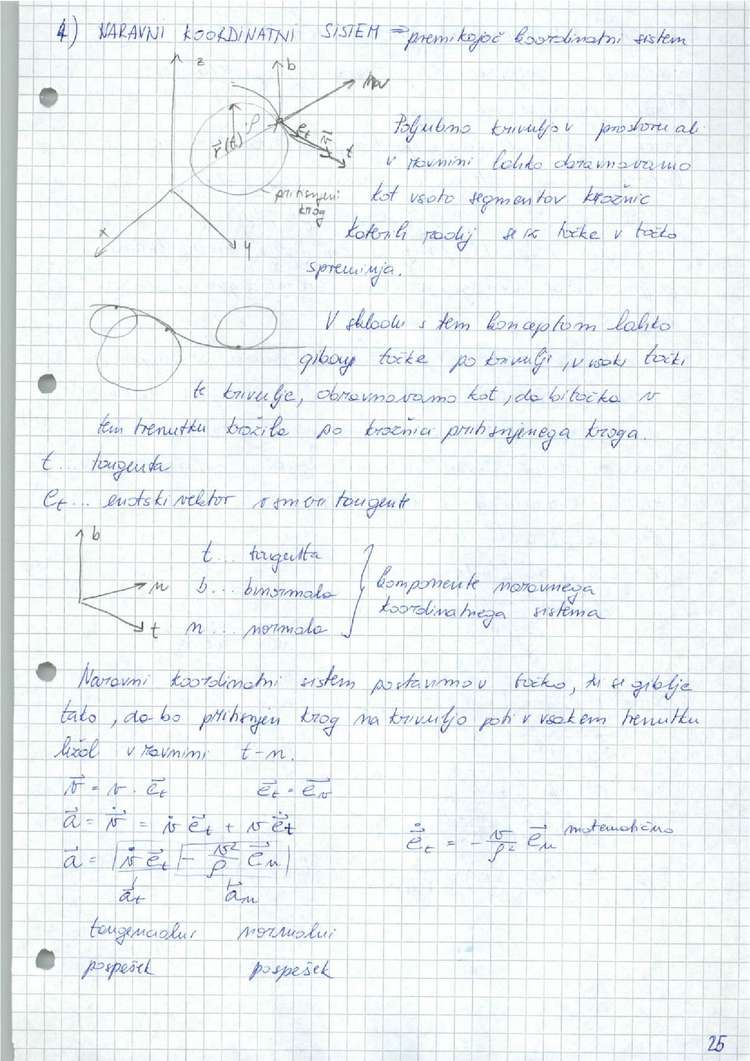 4) NARAVNI KOORDINATNI SISTEM => premikajoč koordinatni sistem
z
b
n
e⃗t
v⃗
t
r⃗(t)
ρ
pritisnjeni
krog
x
y
Poljubno krivuljo v prostoru ali
v ravnini lahko obravnavamo
kot vsoto segmentov krožnic
katerih radij se iz točke v točko
spreminja.
V skladu s tem konceptom lahko
gibanje točke po krivulji, v vsaki točki
te krivulje, obravnavamo kot, da bi točka v
tem trenutku krožila po krožnici pritisnjenega kroga.
t ... tangenta
et ... enotski vektor v smeri tangente
b
n
t
t ... tangenta
b ... binormala
n ... normala
komponente naravnega
koordinatnega sistema
Naravni koordinatni sistem postavimo v točko, ki se giblje
tako, da bo pritisnjen krog na krivuljo poti v vsakem trenutku
ležal v ravnini t-n.
v⃗ = v · e⃗t e⃗t = e⃗v
a⃗ = v⃗̇ = v̇ e⃗t + v e⃗̇t
e⃗̇t = - v/ρ² e⃗n matematično
a⃗ = |v̇ e⃗t| - v²/ρ e⃗n|
a⃗t a⃗n
tangencialni normalni
pospešek pospešek
25